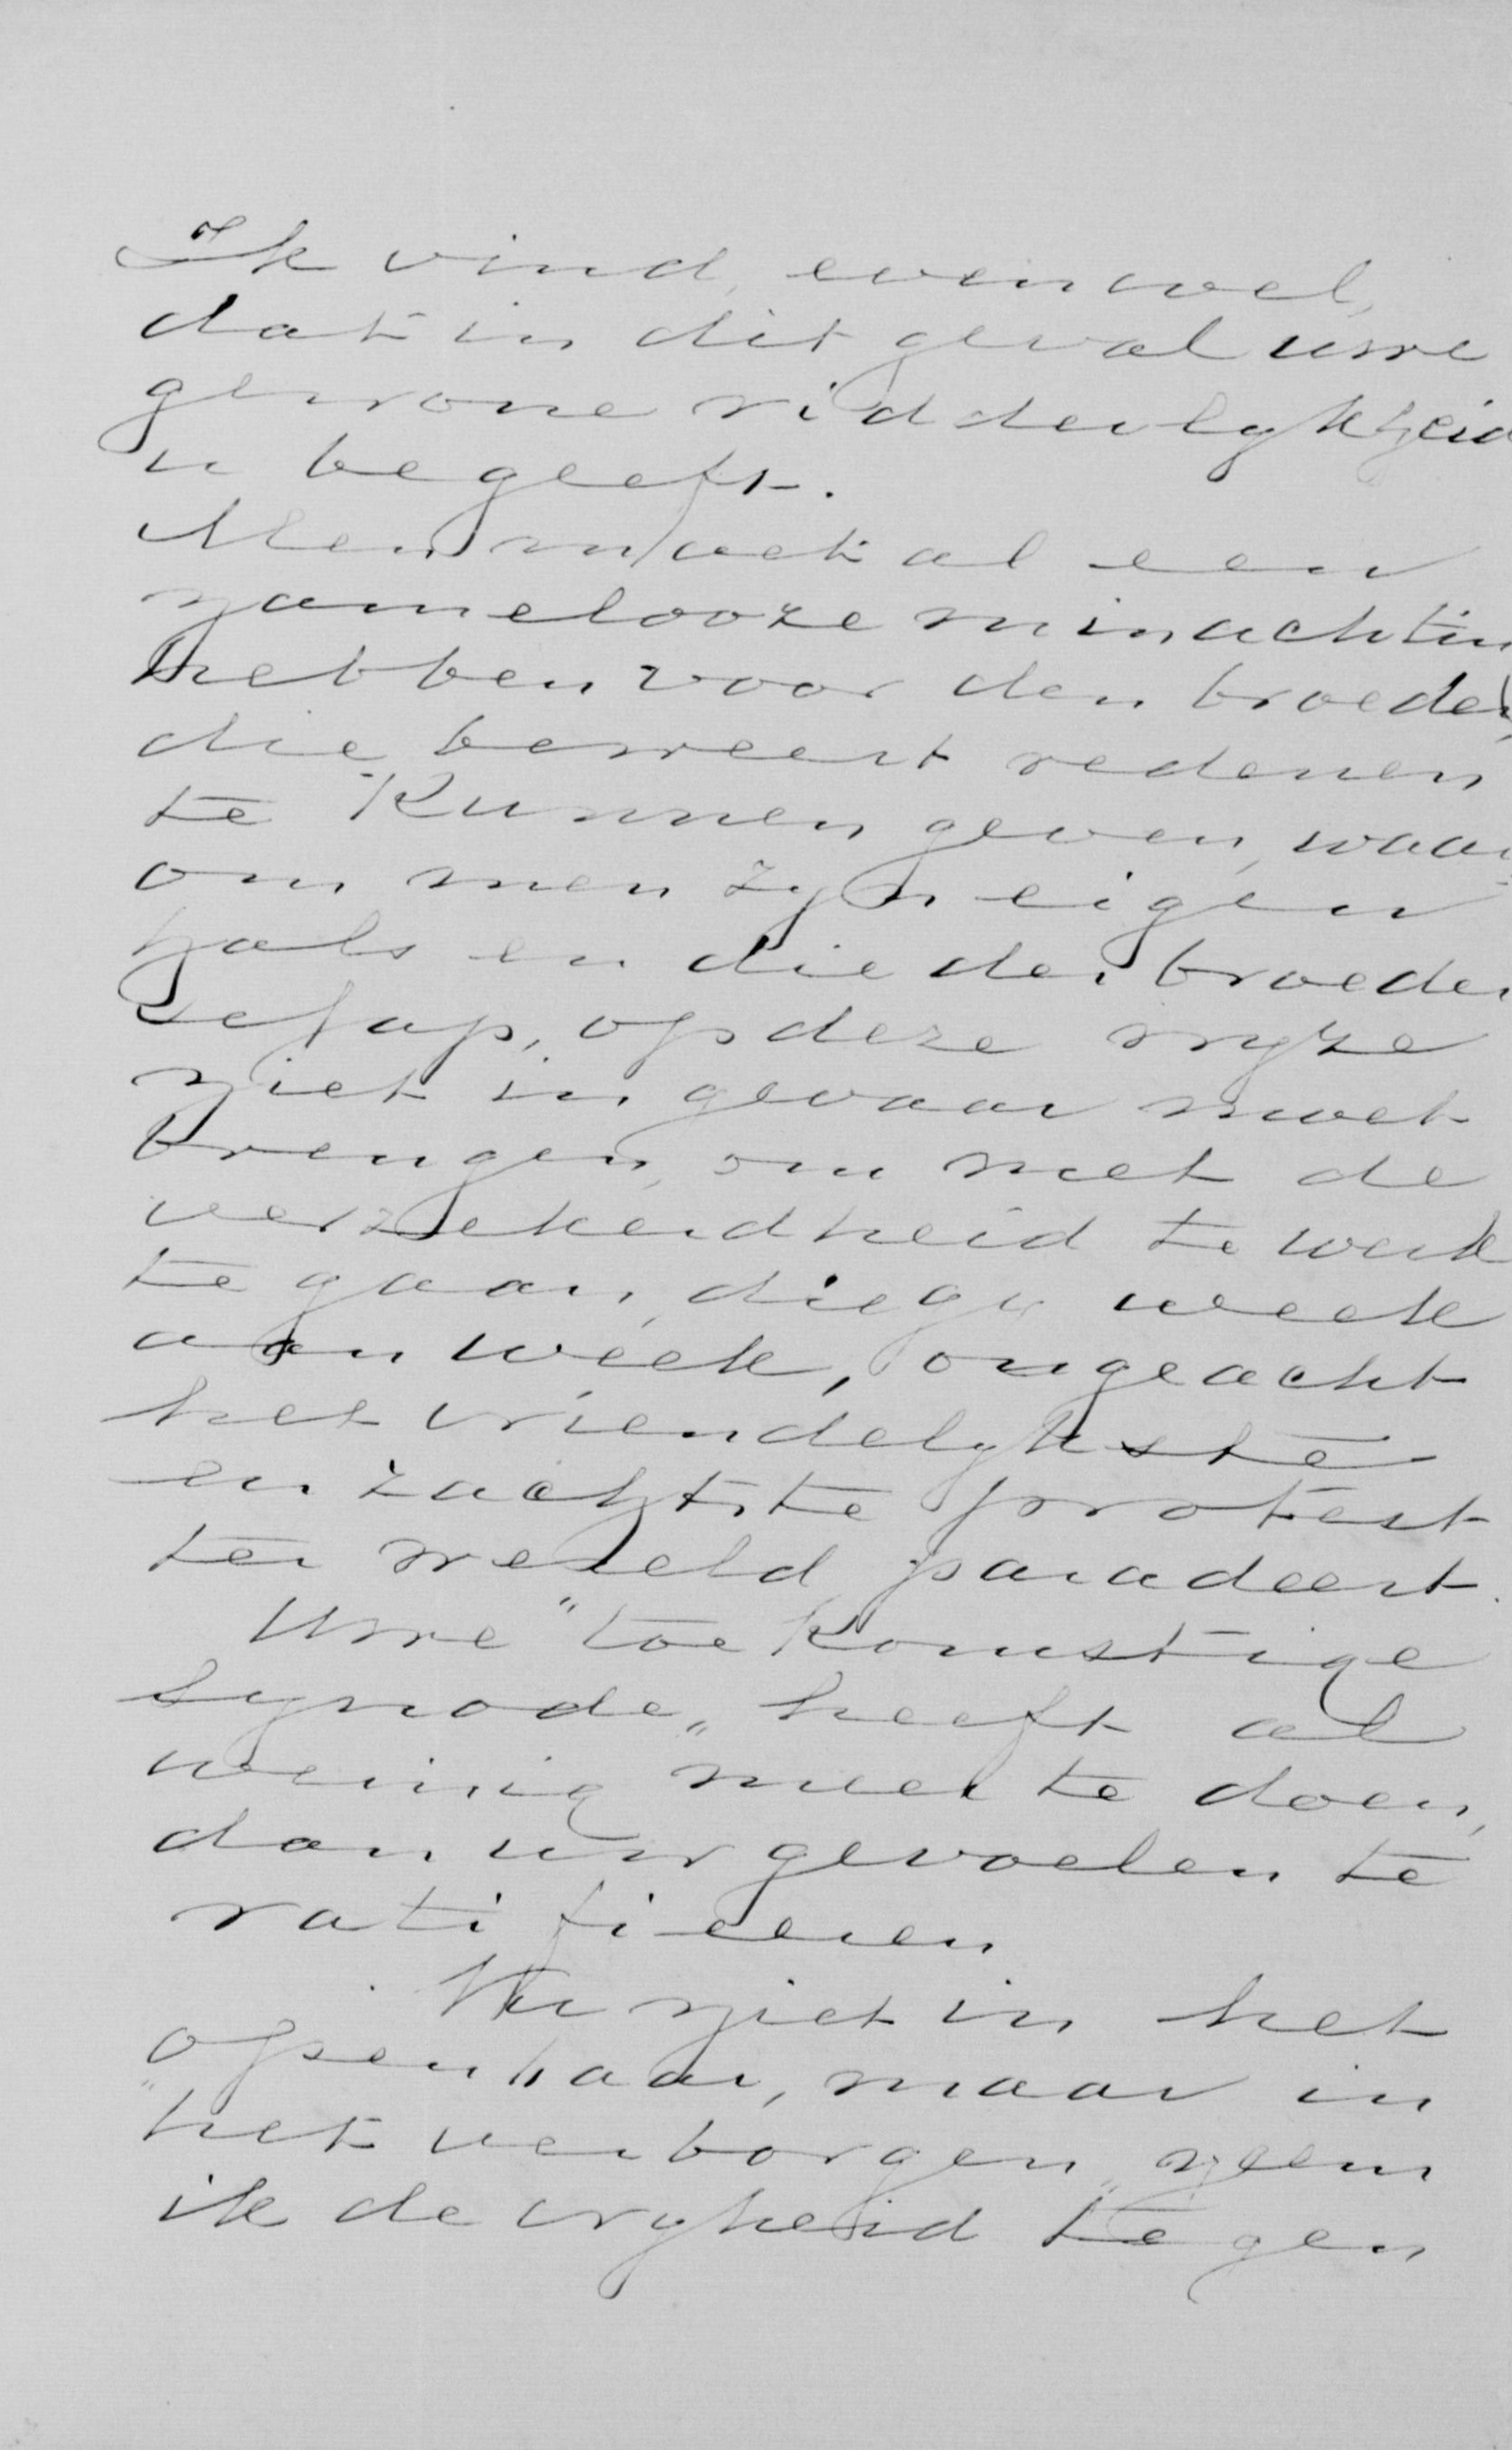 Ik vind, evenwel,
dat in dit geval uwe
gewone ridderlykheid
u begeeft.
Men moet al een
namelooze minachtin
hebben voor den broeder,
die beweert redenen
te kunnen geven, waar
om men zyn eigen
hals en die der broeder
schap, op deze wyze
niet in gevaar moet
brengen, om met de
verzekerdheid te werk
te gaan, die gy week
aan week, ongeacht
het vriendelykste
en zachtste protest
ter wereld paradeert.
Uwe "toekomstige
synode„ heeft al
weinig meer te doen,
dan uw gevoelen te
ratifieeren
Nu niet in het
openbaar, maar in
"het verborgen„ neem
ik de vryheid tegen